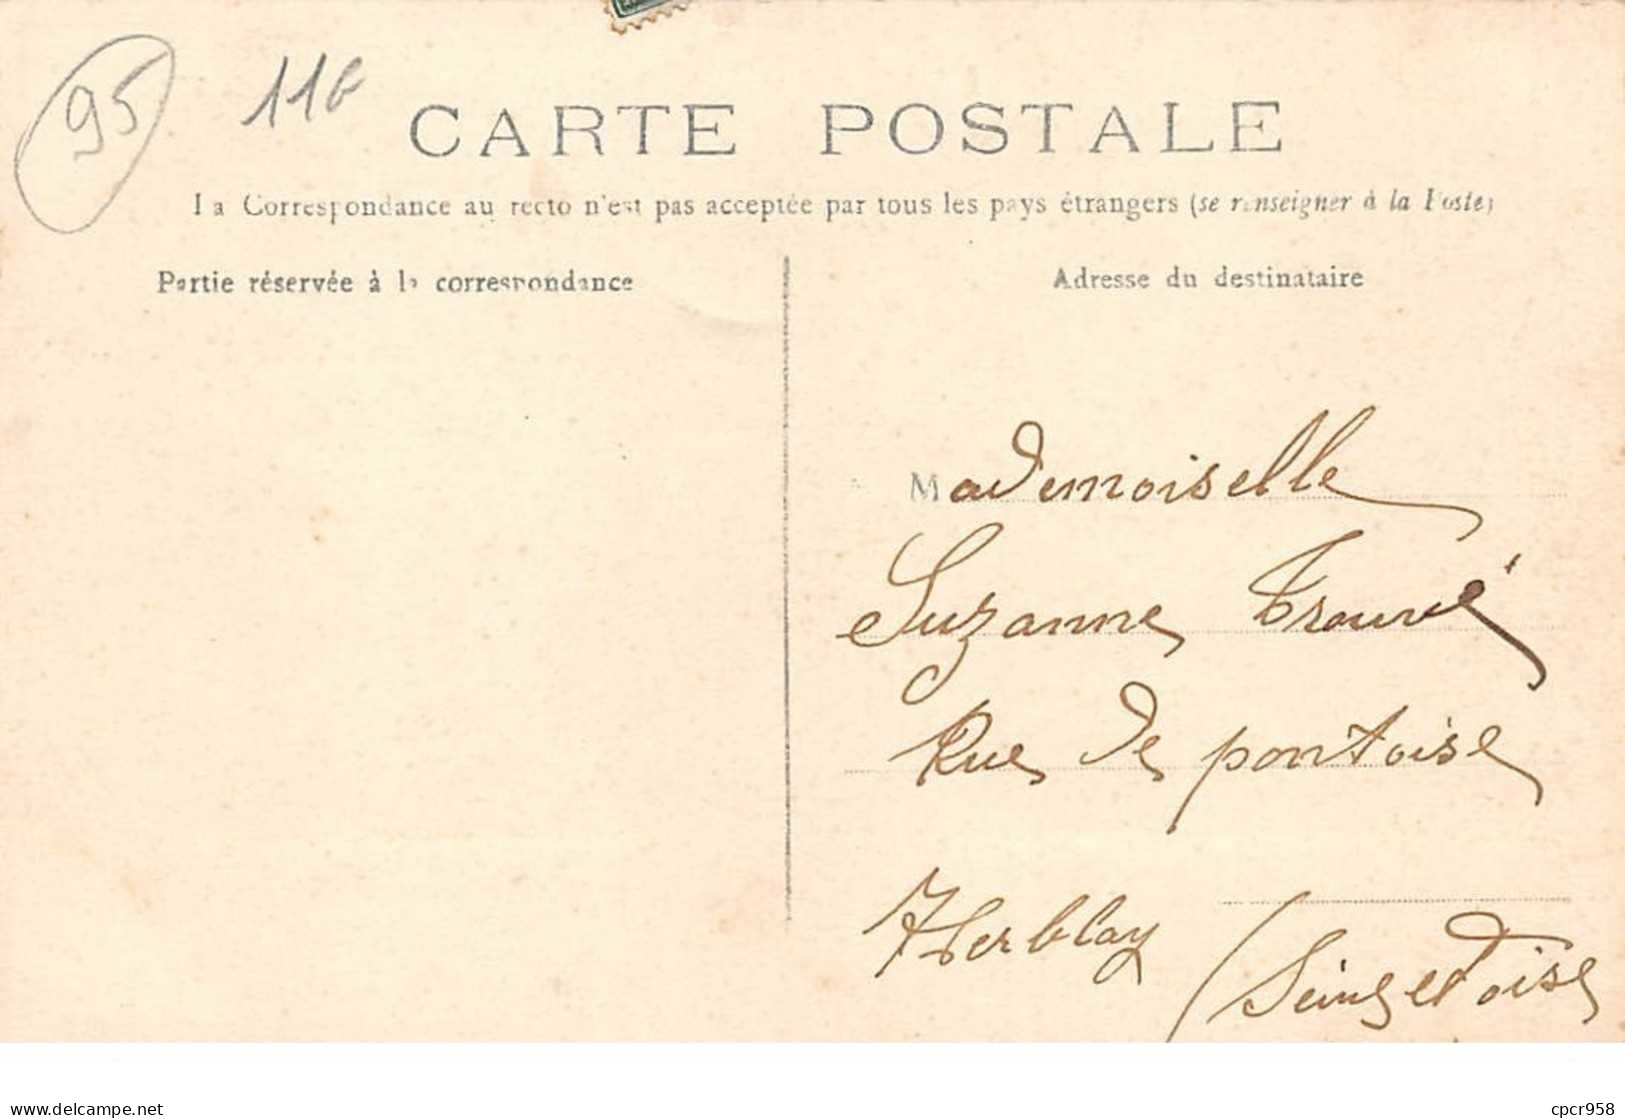 95
11e
CARTE POSTALE
La Correspondance au recto n'est pas acceptée par tous les pays étrangers (se renseigner à la Poste)
Partie réservée à la correspondance
Adresse du destinataire
Mademoiselle
Suzanne Trouvé
Rue de pontoise
Herblay
(Seine et Oise
delcampe.net
cpcr958